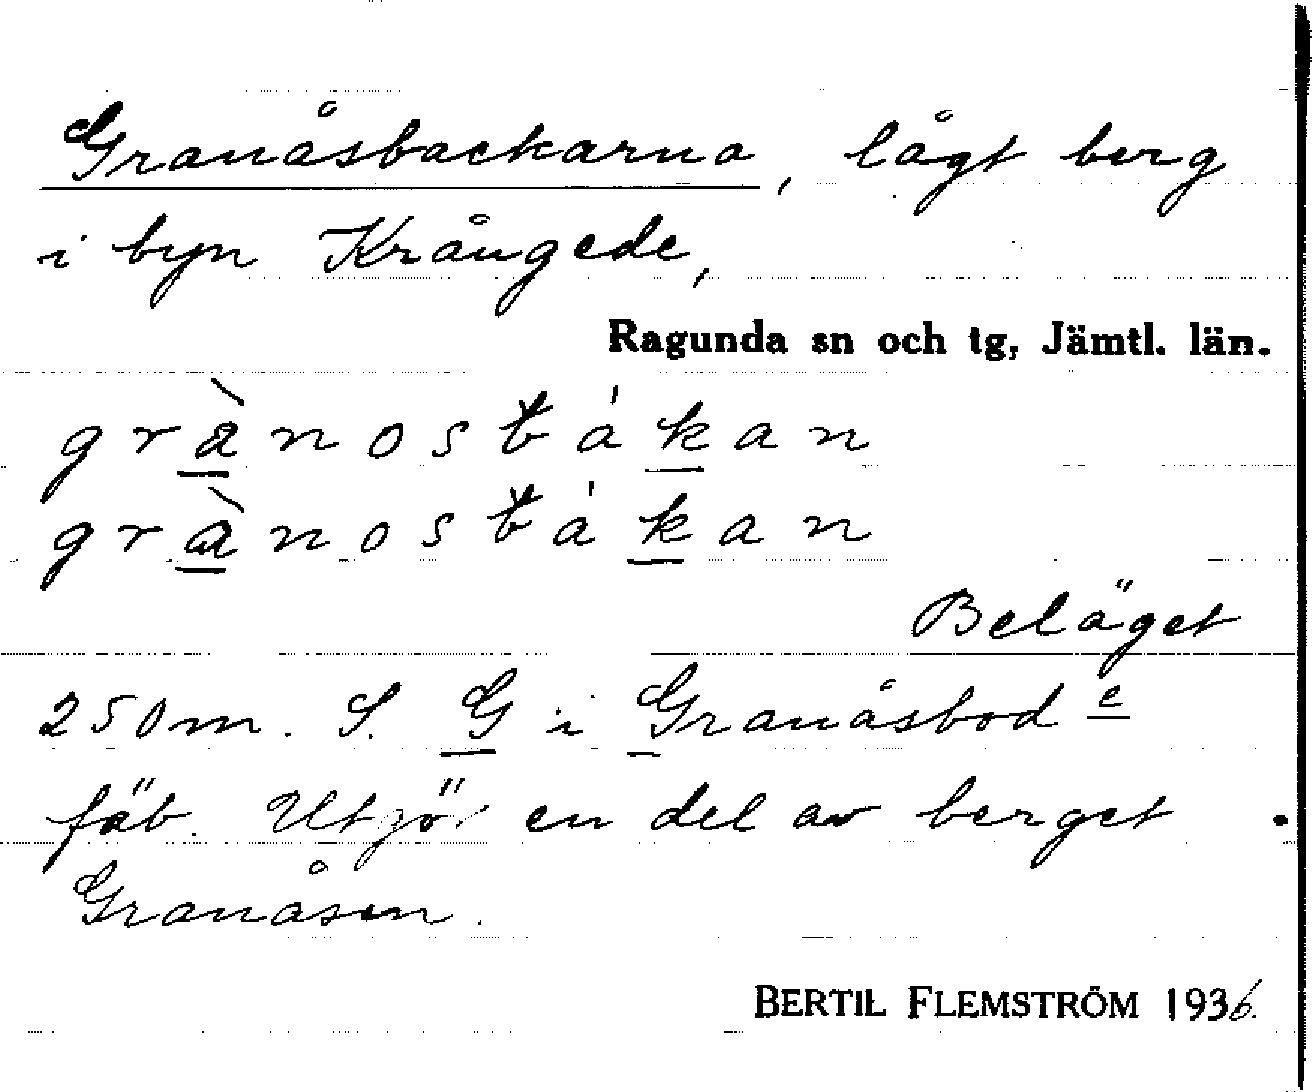 Granåsbackarna, lågt berg
i byn Krångede,
Ragunda sn och tg, Jämtl. län.
grànostákan
grànostákan
Beläget
250m. S. G i Granåsbode
fäb. Utgör en del av berget
Granåsen.
BERTIL FLEMSTRÖM 1936.